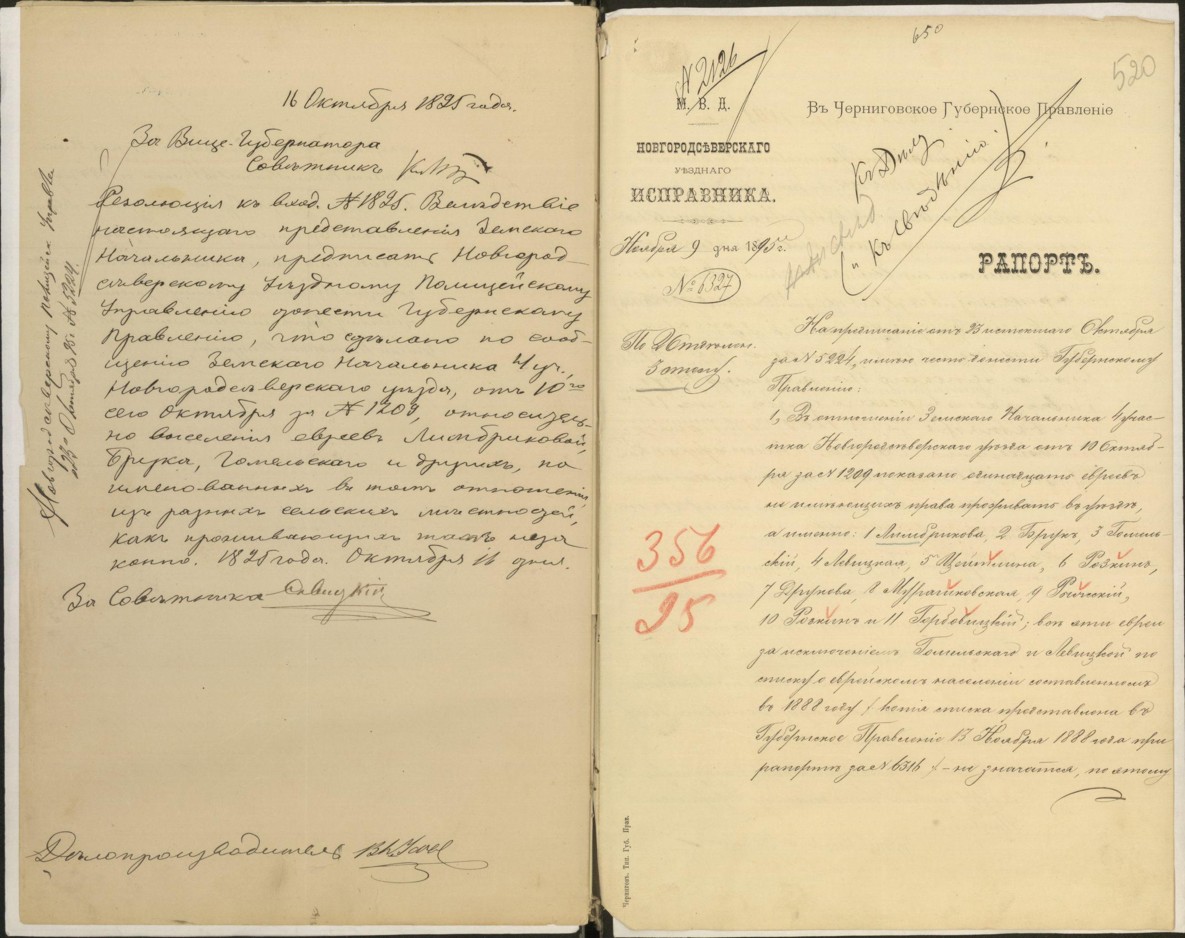 16 Октября 1895 года.
За Вице-Губернатора
Совѣтникъ
Резолюція къ вход. № 1825. Вслѣдствіе
настоящаго представленія Земскаго
Начальника, предписать Новгород
сѣверскому Уѣздному Полицейскому
Управленію донести Губернскому
Правленію, что сдѣлано по сооб-
щенію Земскаго Начальника 4 уч.,
Новгородсѣверскаго уѣзда, отъ 10го
сего Октября за № 1209, относитель-
но выселенія евреевъ Лимбриковой,
Брука, Гомельскаго и другихъ, по
именованныхъ въ томъ отношеніи,
изъ разныхъ сельскихъ мѣстностей,
какъ проживающихъ тамъ неза
конно. 1895 года. Октября 16 дня.
За Совѣтника
Дѣлопроизводитель
Новгородсѣверскому Полицейск. Управл.
23го Октября 95 г. № 5224.
650
520
№ 2126
М. В. Д.
НОВГОРОДСѢВЕРСКАГО
УѢЗДНАГО
ИСПРАВНИКА.
Ноября 9 дня 1895 г.
№ 6327
По 2 Отдѣлен.
3 столу.
Въ Черниговское Губернское Правленіе
Къ дѣлу
Къ свѣдѣнію
РАПОРТЪ.
На предписаніе отъ 23 истекшаго Октября
за № 5224, имѣю честь донести Губернскому
Правленію:
1, Въ отношеніи Земскаго Начальника 4 учас-
тка Новгородсѣверскаго уѣзда отъ 10 Октяб-
ря за № 1209 показано одинадцать евреевъ
не имѣющихъ права проживать въ уѣздѣ,
а именно: 1 Лимбрикова, 2 Брукъ, 3 Гомель-
скій, 4 Левицкая, 5 Цейтлина, 6 Розкинъ,
7 Другова, 8 Мурашковская, 9 скій,
10 Роскинъ и 11 Горбовицкій; всѣ эти евреи
за исключеніемъ Гомельскаго и Левицкой по
списку о еврейскомъ населеніи составленномъ
въ 1888 году / копія списка представлена въ
Губернское Правленіе 13 Ноября 1888 года при
рапортѣ за № 6316 / - не значатся, поэтому
356
95
Чернигов. Тип. Губ. Прав.